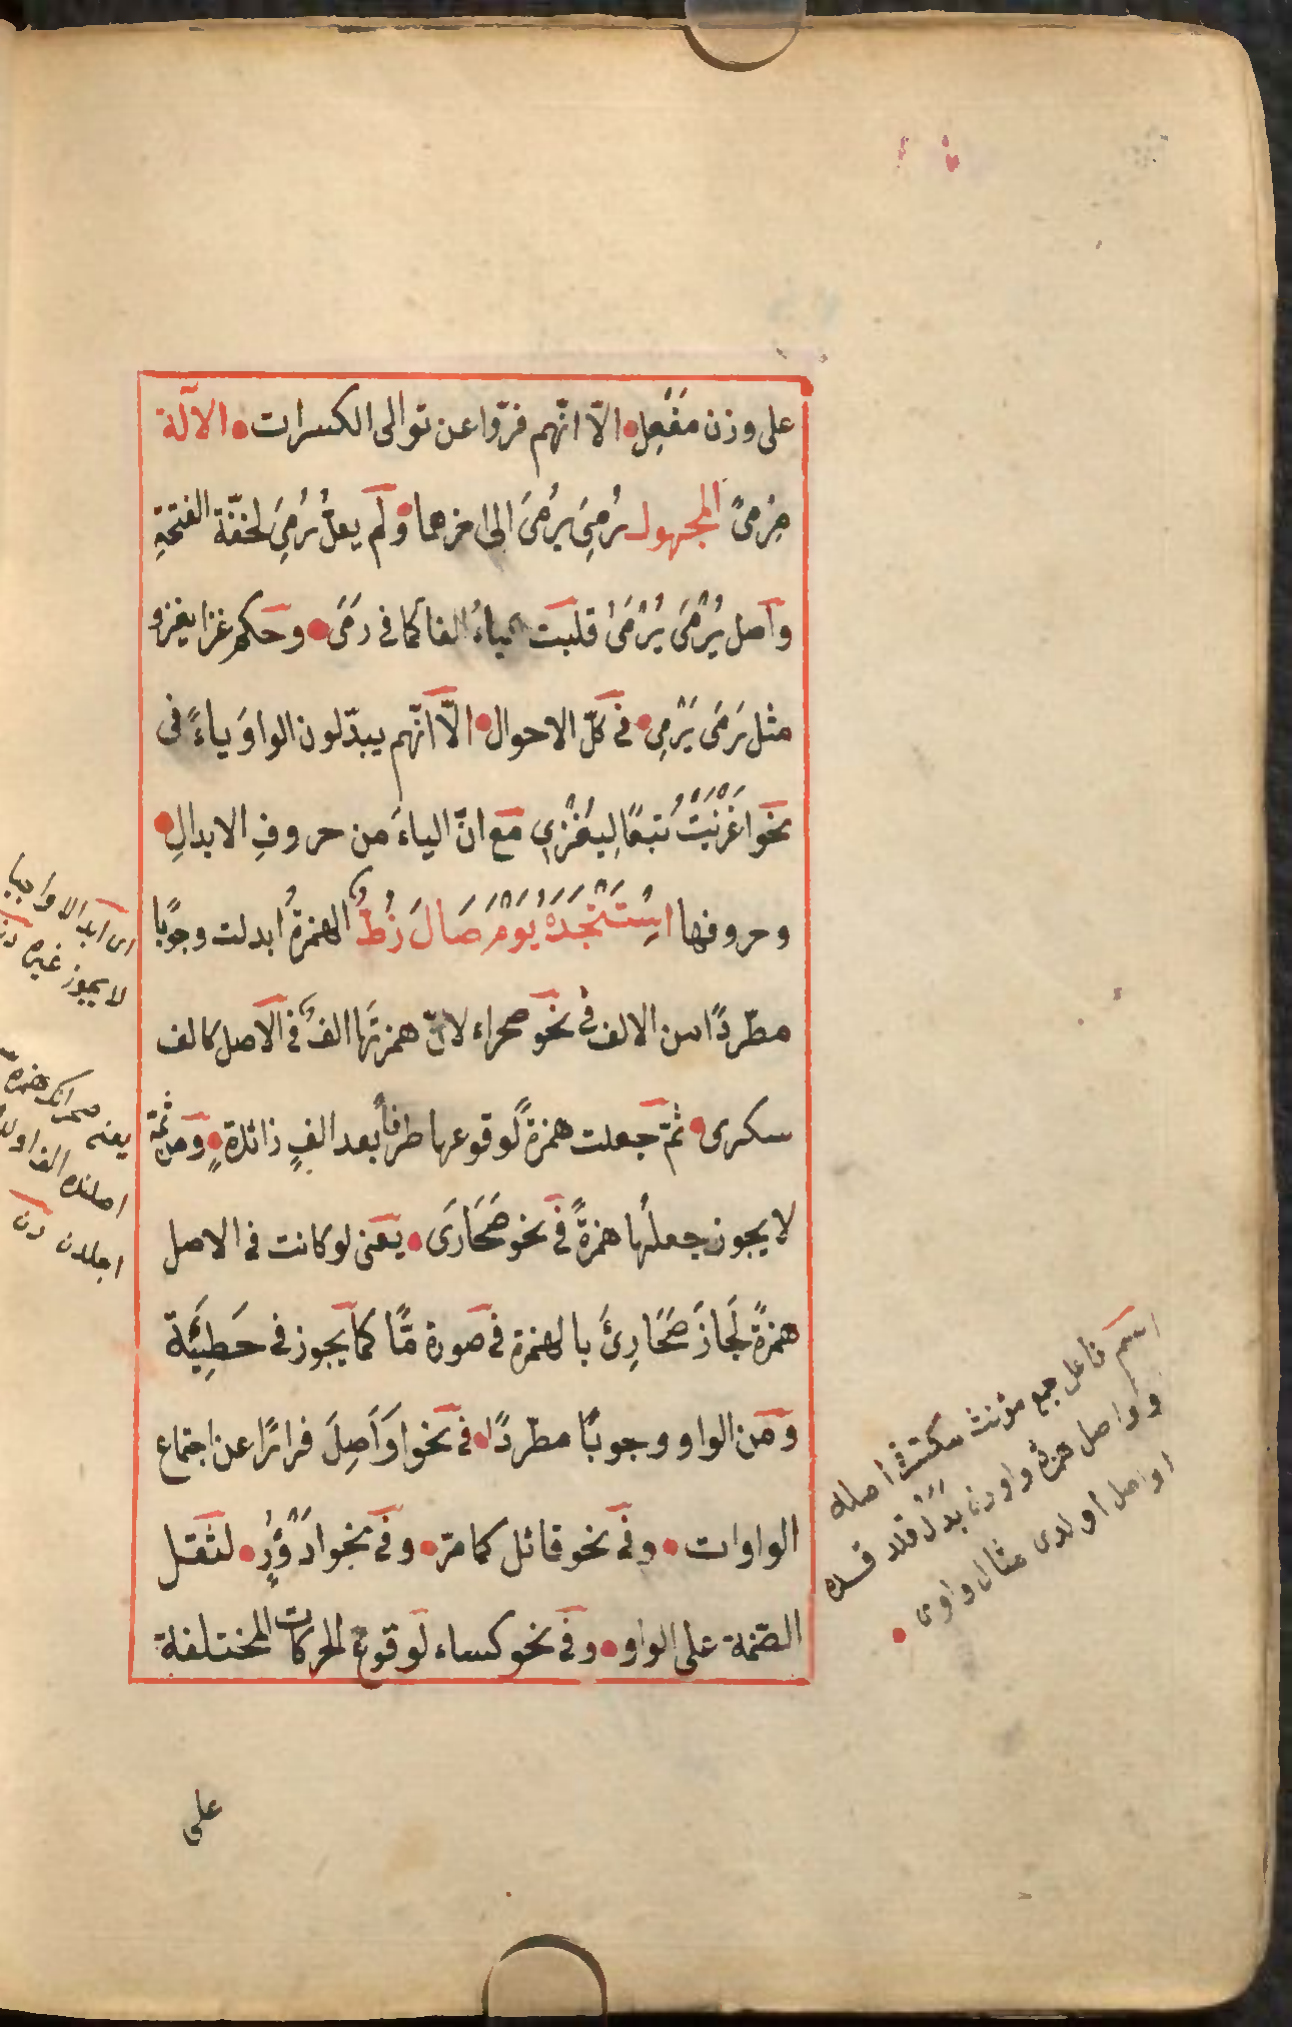 على وزن مَفْعِل الّا انّهم فرّوا عن توالى الكسرات الآلة
مِرْمىً المجهول رُمِىَ يُرْمَى الى اخرهما ولَم يعلّ رُمِىَ لخفّة الفتحةِ
وآصل يُرْمَى يُرْمَىُ قلبَت الياءُ الفا كما فى رمَى وحكم غزا يغزو
مثل رَمَى يَرْمِى فى كلّ الاحوال الّا انّهم يبدّلون الواوَ ياءً فى
نحو اَغْزَيْتُ تبعًا لِيُغْزِى مَع انّ الياءَ من حروفِ الابدالِ
وحروفها اسْتَنْجَدَهُ يَوْمَ صَالَ زُطٌّ الهمزةُ ابدلت وجوبًا
مطّردًا من الالف فى نحو صحراء لانّ همزتَها الفٌ فى الآصل كالف
سكرى ثمّ جعلت همزةً لوقوعها طرفاً بعد الفٍ زائدةٍ ومن ثمّة
لا يجوز جعلُها همزةً فى نحو صَحَارَى يعنى لو كانت فى الاصل
همزةً لَجازَ صَحَارِئَ بالهمزة فى صورة مّا كما يجوز فى خَطِيئَة
ومن الواو وجوبًا مطّردًا فى نحو اَوَاصِلَ فرارًا عن اجتماع
الواوات وفى نحو قائل كما مرّ وفى نحو اَدْؤُرٍ لثقل
الضّمة على الواو وفى نحو كساء لوقوع الحركات المختلفة
على
اى ابدالا واجبا
لا يجوز غيره
يعنى صحرانك همزه
اصلنده الف
اجلدن دن
اسم فاعل جمع مؤنث اصله
وواصل همزه واودن بدل
اواصل اولدى مثال واوى